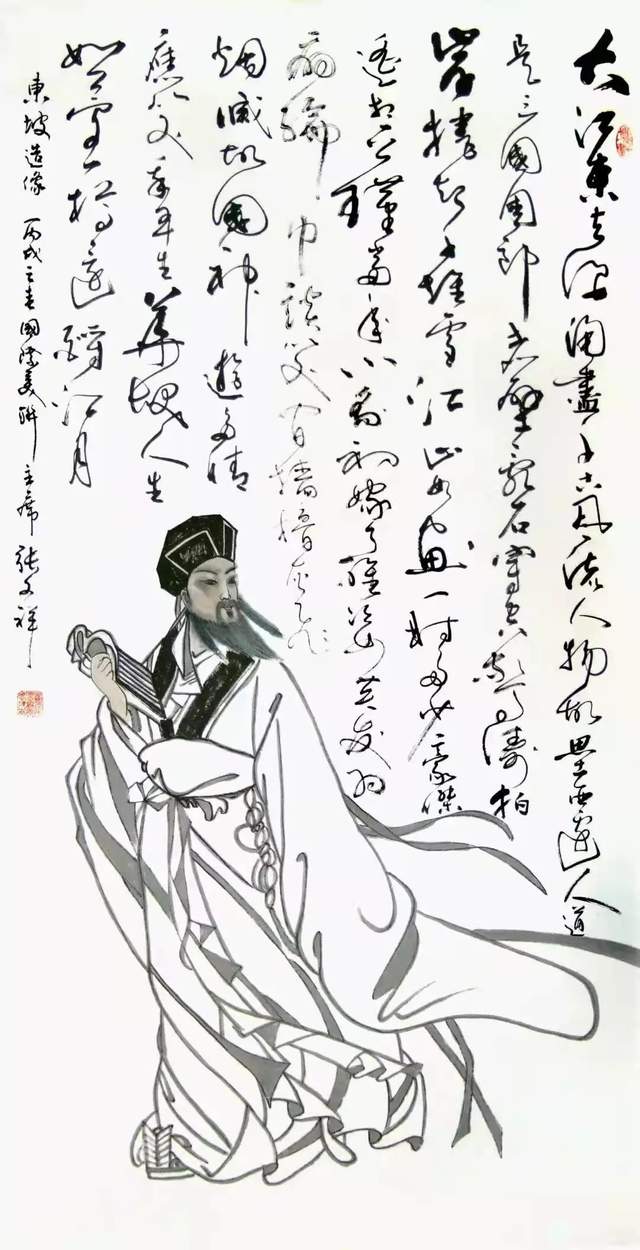 大江東去浪淘盡千古風流人物故壘西邊人道
是三國周郎赤壁亂石穿空驚濤拍
岸捲起千堆雪江山如畫一時多少豪傑
遙想公瑾當年小喬初嫁了雄姿英發羽
扇綸巾談笑間檣櫓灰飛
烟滅故國神遊多情
應笑我早生華髮人生
如夢一樽還酹江月
東坡造像 丙戌之春國際美聯主席張文祥